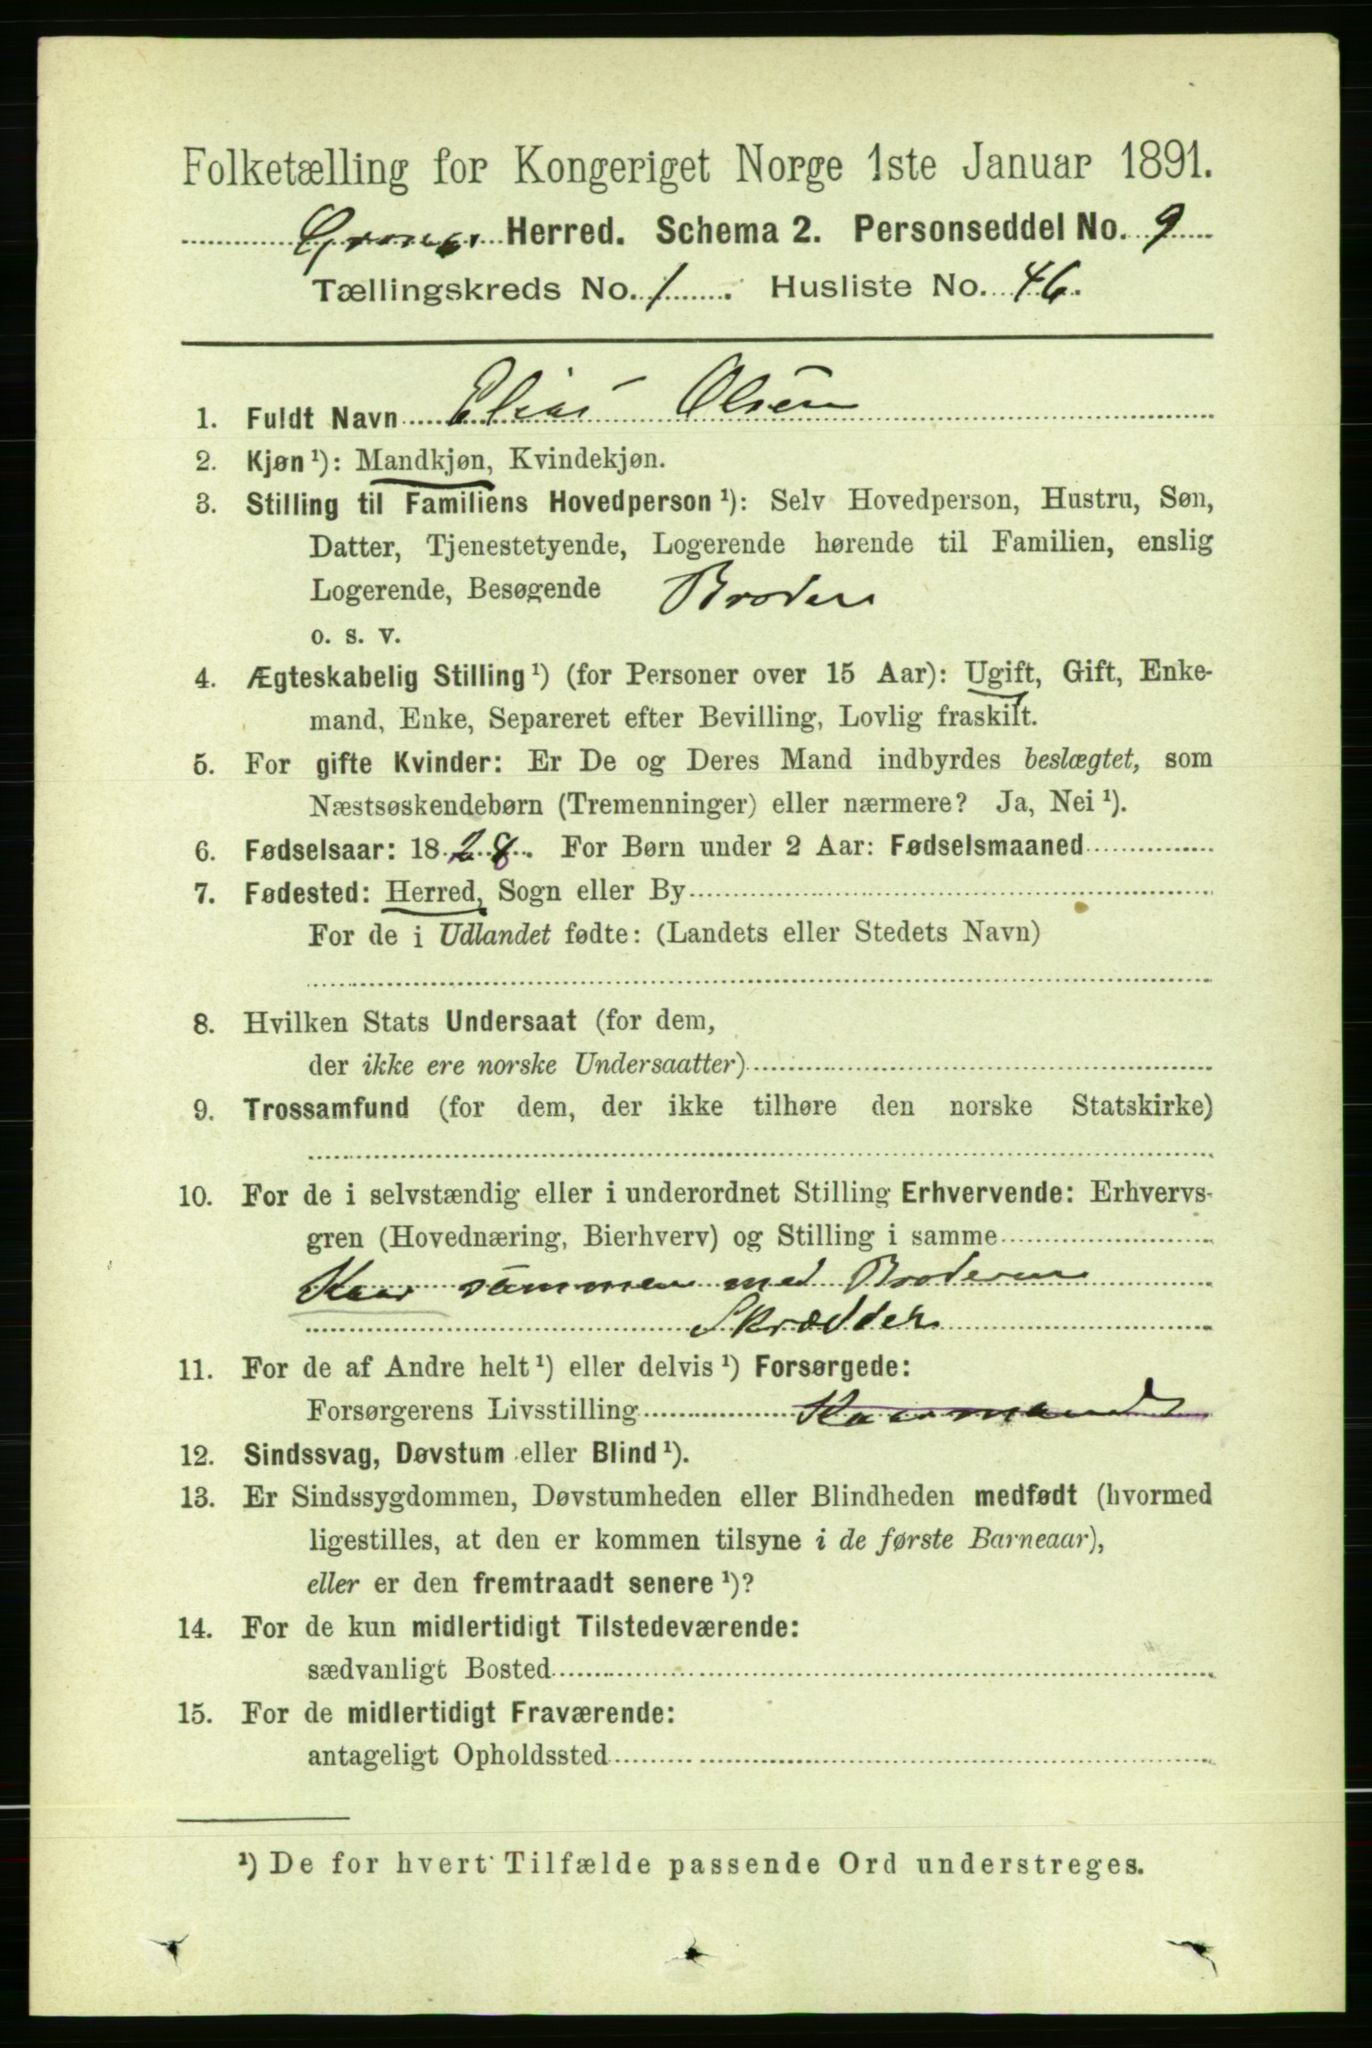 Folketælling for Kongeriget Norge 1ste Januar 1891.
Herred. Schema 2. Personseddel No. 9
Tællingskreds No. 1. Husliste No. 46.
1. Fuldt Navn Elias Olsen
2. Kjøn ¹): Mandkjøn, Kvindekjøn.
3. Stilling til Familiens Hovedperson ¹): Selv Hovedperson, Hustru, Søn,
Datter, Tjenestetyende, Logerende hørende til Familien, enslig
Logerende, Besøgende Broder
o. s. v.
4. Ægteskabelig Stilling ¹) (for Personer over 15 Aar): Ugift, Gift, Enke-
mand, Enke, Separeret efter Bevilling, Lovlig fraskilt.
5. For gifte Kvinder: Er De og Deres Mand indbyrdes beslægtet, som
Næstsøskendebørn (Tremenninger) eller nærmere? Ja, Nei ¹).
6. Fødselsaar: 1828. For Børn under 2 Aar: Fødselsmaaned
7. Fødested: Herred, Sogn eller By
For de i Udlandet fødte: (Landets eller Stedets Navn)
8. Hvilken Stats Undersaat (for dem,
der ikke ere norske Undersaatter)
9. Trossamfund (for dem, der ikke tilhøre den norske Statskirke)
10. For de i selvstændig eller i underordnet Stilling Erhvervende: Erhvervs-
gren (Hovednæring, Bierhverv) og Stilling i samme
Kaar sammen med Broderen
Skrædder
11. For de af Andre helt ¹) eller delvis ¹) Forsørgede:
Forsørgerens Livsstilling Kaarmand
12. Sindssvag, Døvstum eller Blind ¹).
13. Er Sindssygdommen, Døvstumheden eller Blindheden medfødt (hvormed
ligestilles, at den er kommen tilsyne i de første Barneaar),
eller er den fremtraadt senere ¹)?
14. For de kun midlertidigt Tilstedeværende:
sædvanligt Bosted
15. For de midlertidigt Fraværende:
antageligt Opholdssted
¹) De for hvert Tilfælde passende Ord understreges.